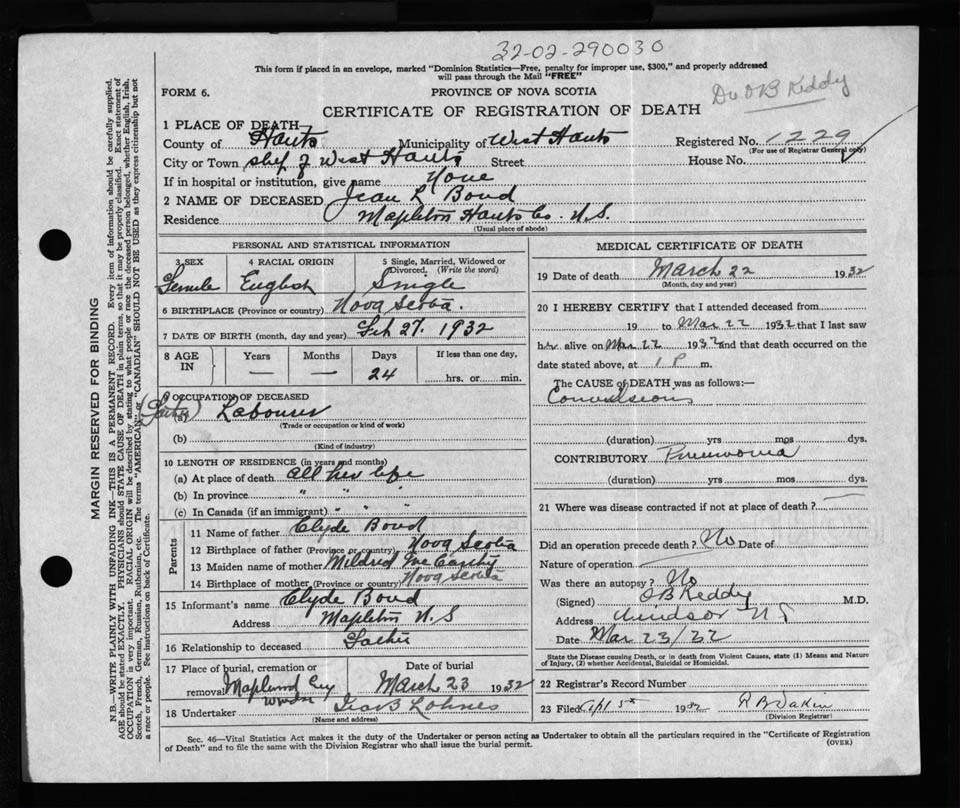 32-02-290030
This form if placed in an envelope, marked "Dominion Statistics—Free, penalty for improper use, $300," and properly addressed
will pass through the Mail "FREE"
FORM 6.
PROVINCE OF NOVA SCOTIA
Dr O B Keddy
CERTIFICATE OF REGISTRATION OF DEATH
1 PLACE OF DEATH
County of Hants Municipality of West Hants Registered No. 1229
(For use of Registrar General only)
City or Town West Hants Street House No.
If in hospital or institution, give name None
2 NAME OF DECEASED Jean L Bond
Residence Mapleton Hants Co. N.S.
(Usual place of abode)
PERSONAL AND STATISTICAL INFORMATION
3 SEX 4 RACIAL ORIGIN 5 Single, Married, Widowed or Divorced. (Write the word)
Female English Single
6 BIRTHPLACE (Province or country) Nova Scotia.
7 DATE OF BIRTH (month, day and year) Feb 27, 1932
8 AGE IN Years Months Days If less than one day,
— — 24 hrs. or min.
9 OCCUPATION OF DECEASED
(Father) (a) Labourer
(Trade or occupation or kind of work)
(b)
(Kind of industry)
10 LENGTH OF RESIDENCE (in years and months)
(a) At place of death All her life
(b) In province " " "
(c) In Canada (if an immigrant) " " "
Parents
11 Name of father Clyde Bond
12 Birthplace of father (Province or country) Nova Scotia
13 Maiden name of mother Mildred
14 Birthplace of mother (Province or country) Nova Scotia
15 Informant's name Clyde Bond
Address Mapleton N.S
16 Relationship to deceased Father
17 Place of burial, cremation or removal Date of burial
Maplewood March 23 1932
18 Undertaker Lohnes
(Name and address)
MEDICAL CERTIFICATE OF DEATH
19 Date of death March 22 1932
(Month, day and year)
20 I HEREBY CERTIFY that I attended deceased from
19 to Mar 22 1932 that I last saw
her alive on Mar 22 1932 and that death occurred on the
date stated above, at 1 P m.
The CAUSE of DEATH was as follows:—
Convulsions
(duration) yrs mos dys.
CONTRIBUTORY Pneumonia
(duration) yrs mos dys.
21 Where was disease contracted if not at place of death? —
Did an operation precede death? No Date of
Nature of operation —
Was there an autopsy? No
(Signed) O B Keddy M.D.
Address Windsor N S
Date Mar 23/32
State the Disease causing Death, or in death from Violent Causes, state (1) Means and Nature
of Injury, (2) whether Accidental, Suicidal or Homicidal.
22 Registrar's Record Number
23 Filed 1932
(Division Registrar)
Sec. 46—Vital Statistics Act makes it the duty of the Undertaker or person acting as Undertaker to obtain all the particulars required in the "Certificate of Registration
of Death" and to file the same with the Division Registrar who shall issue the burial permit.
(OVER)
MARGIN RESERVED FOR BINDING
N.B.—WRITE PLAINLY WITH UNFADING INK—THIS IS A PERMANENT RECORD. Every item of information should be carefully supplied.
AGE should be stated EXACTLY. PHYSICIANS should STATE CAUSE OF DEATH in plain terms, so that it may be properly classified. Exact statement of
OCCUPATION is very important. RACIAL ORIGIN will be described by stating to what people or race the deceased person belonged, whether English, Irish,
Scotch, French, German, Russian, Ruthenian, etc. The terms "AMERICAN" or "CANADIAN" SHOULD NOT BE USED as they express citizenship but not
a race or people. See instructions on back of Certificate.